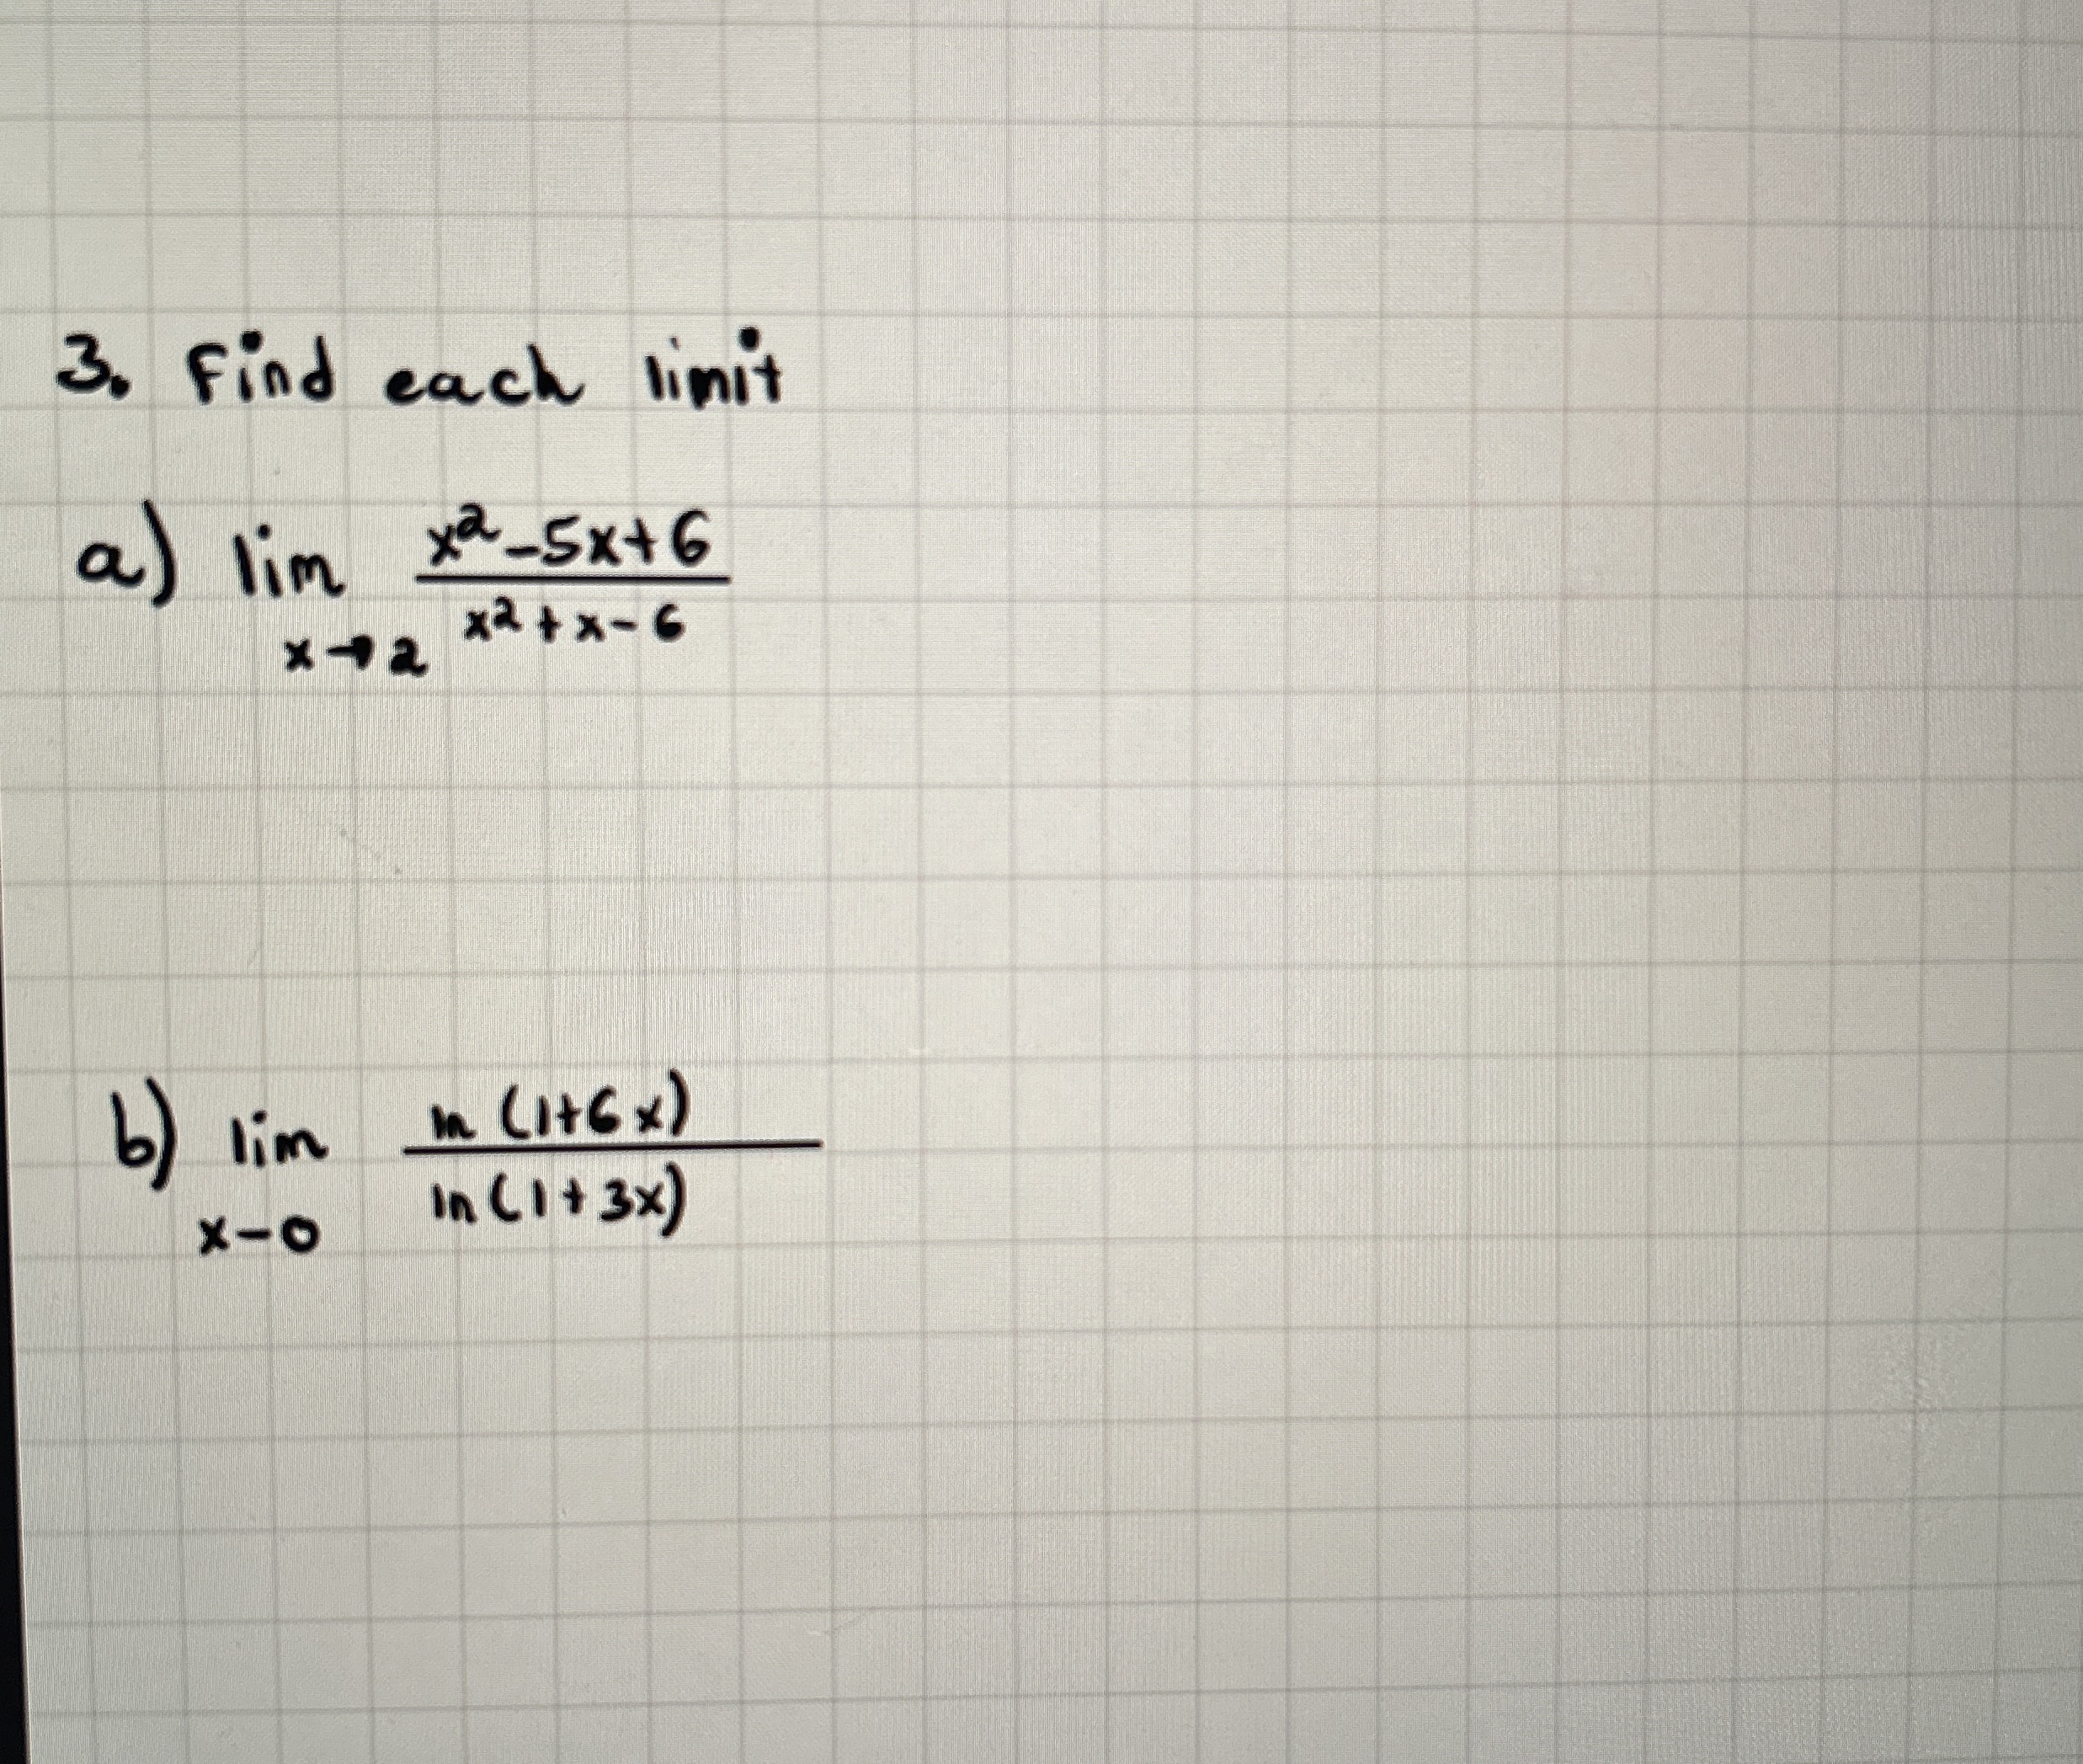 3. Find each limit
a) lim x→2 (x²-5x+6)/(x²+x-6)
b) lim x-0 (ln (1+6x))/(ln(1+3x))